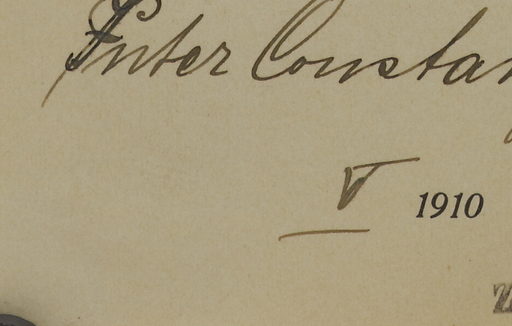 Inter Constan
V 1910